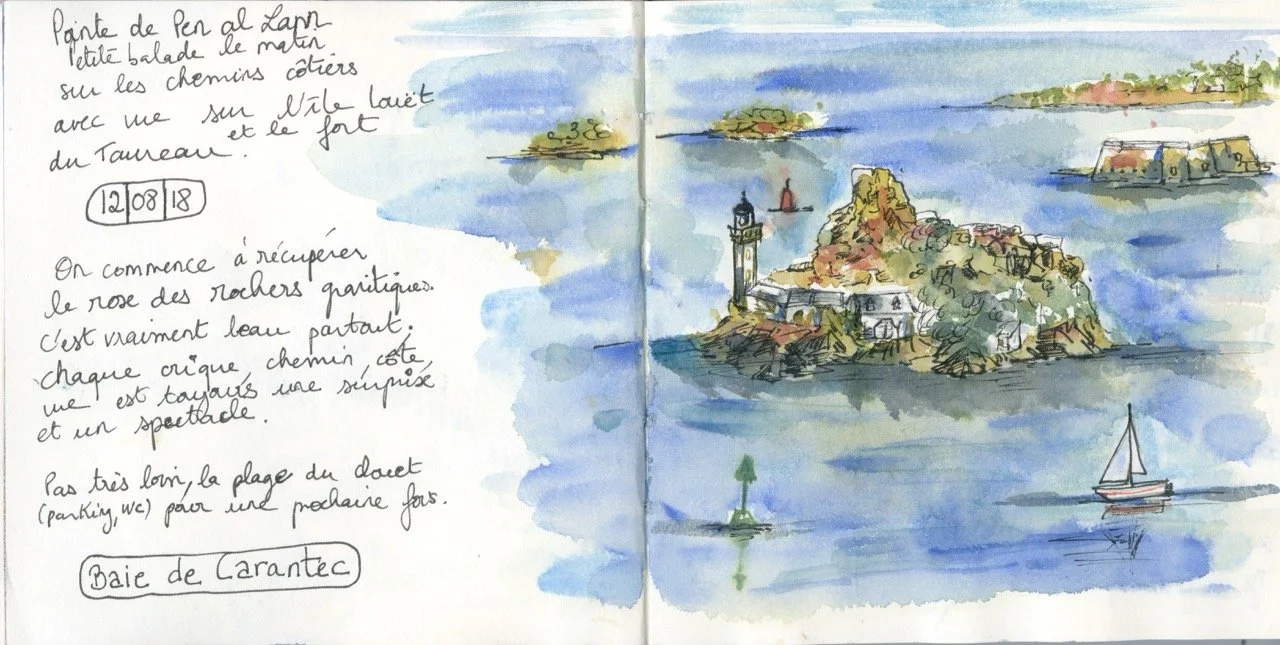 Pointe de Pen al Lann
Petite balade le matin
sur les chemins côtiers
avec vue sur l'île louët
et le fort
du Taureau.
12|08|18
On commence à récupérer
le rose des rochers granitiques.
c'est vraiment beau partout.
chaque crique, chemin, côte,
vue est toujours une surprise
et un spectacle.
Pas très loin, la plage du clouet
(parking, wc) pour une prochaine fois.
Baie de Carantec